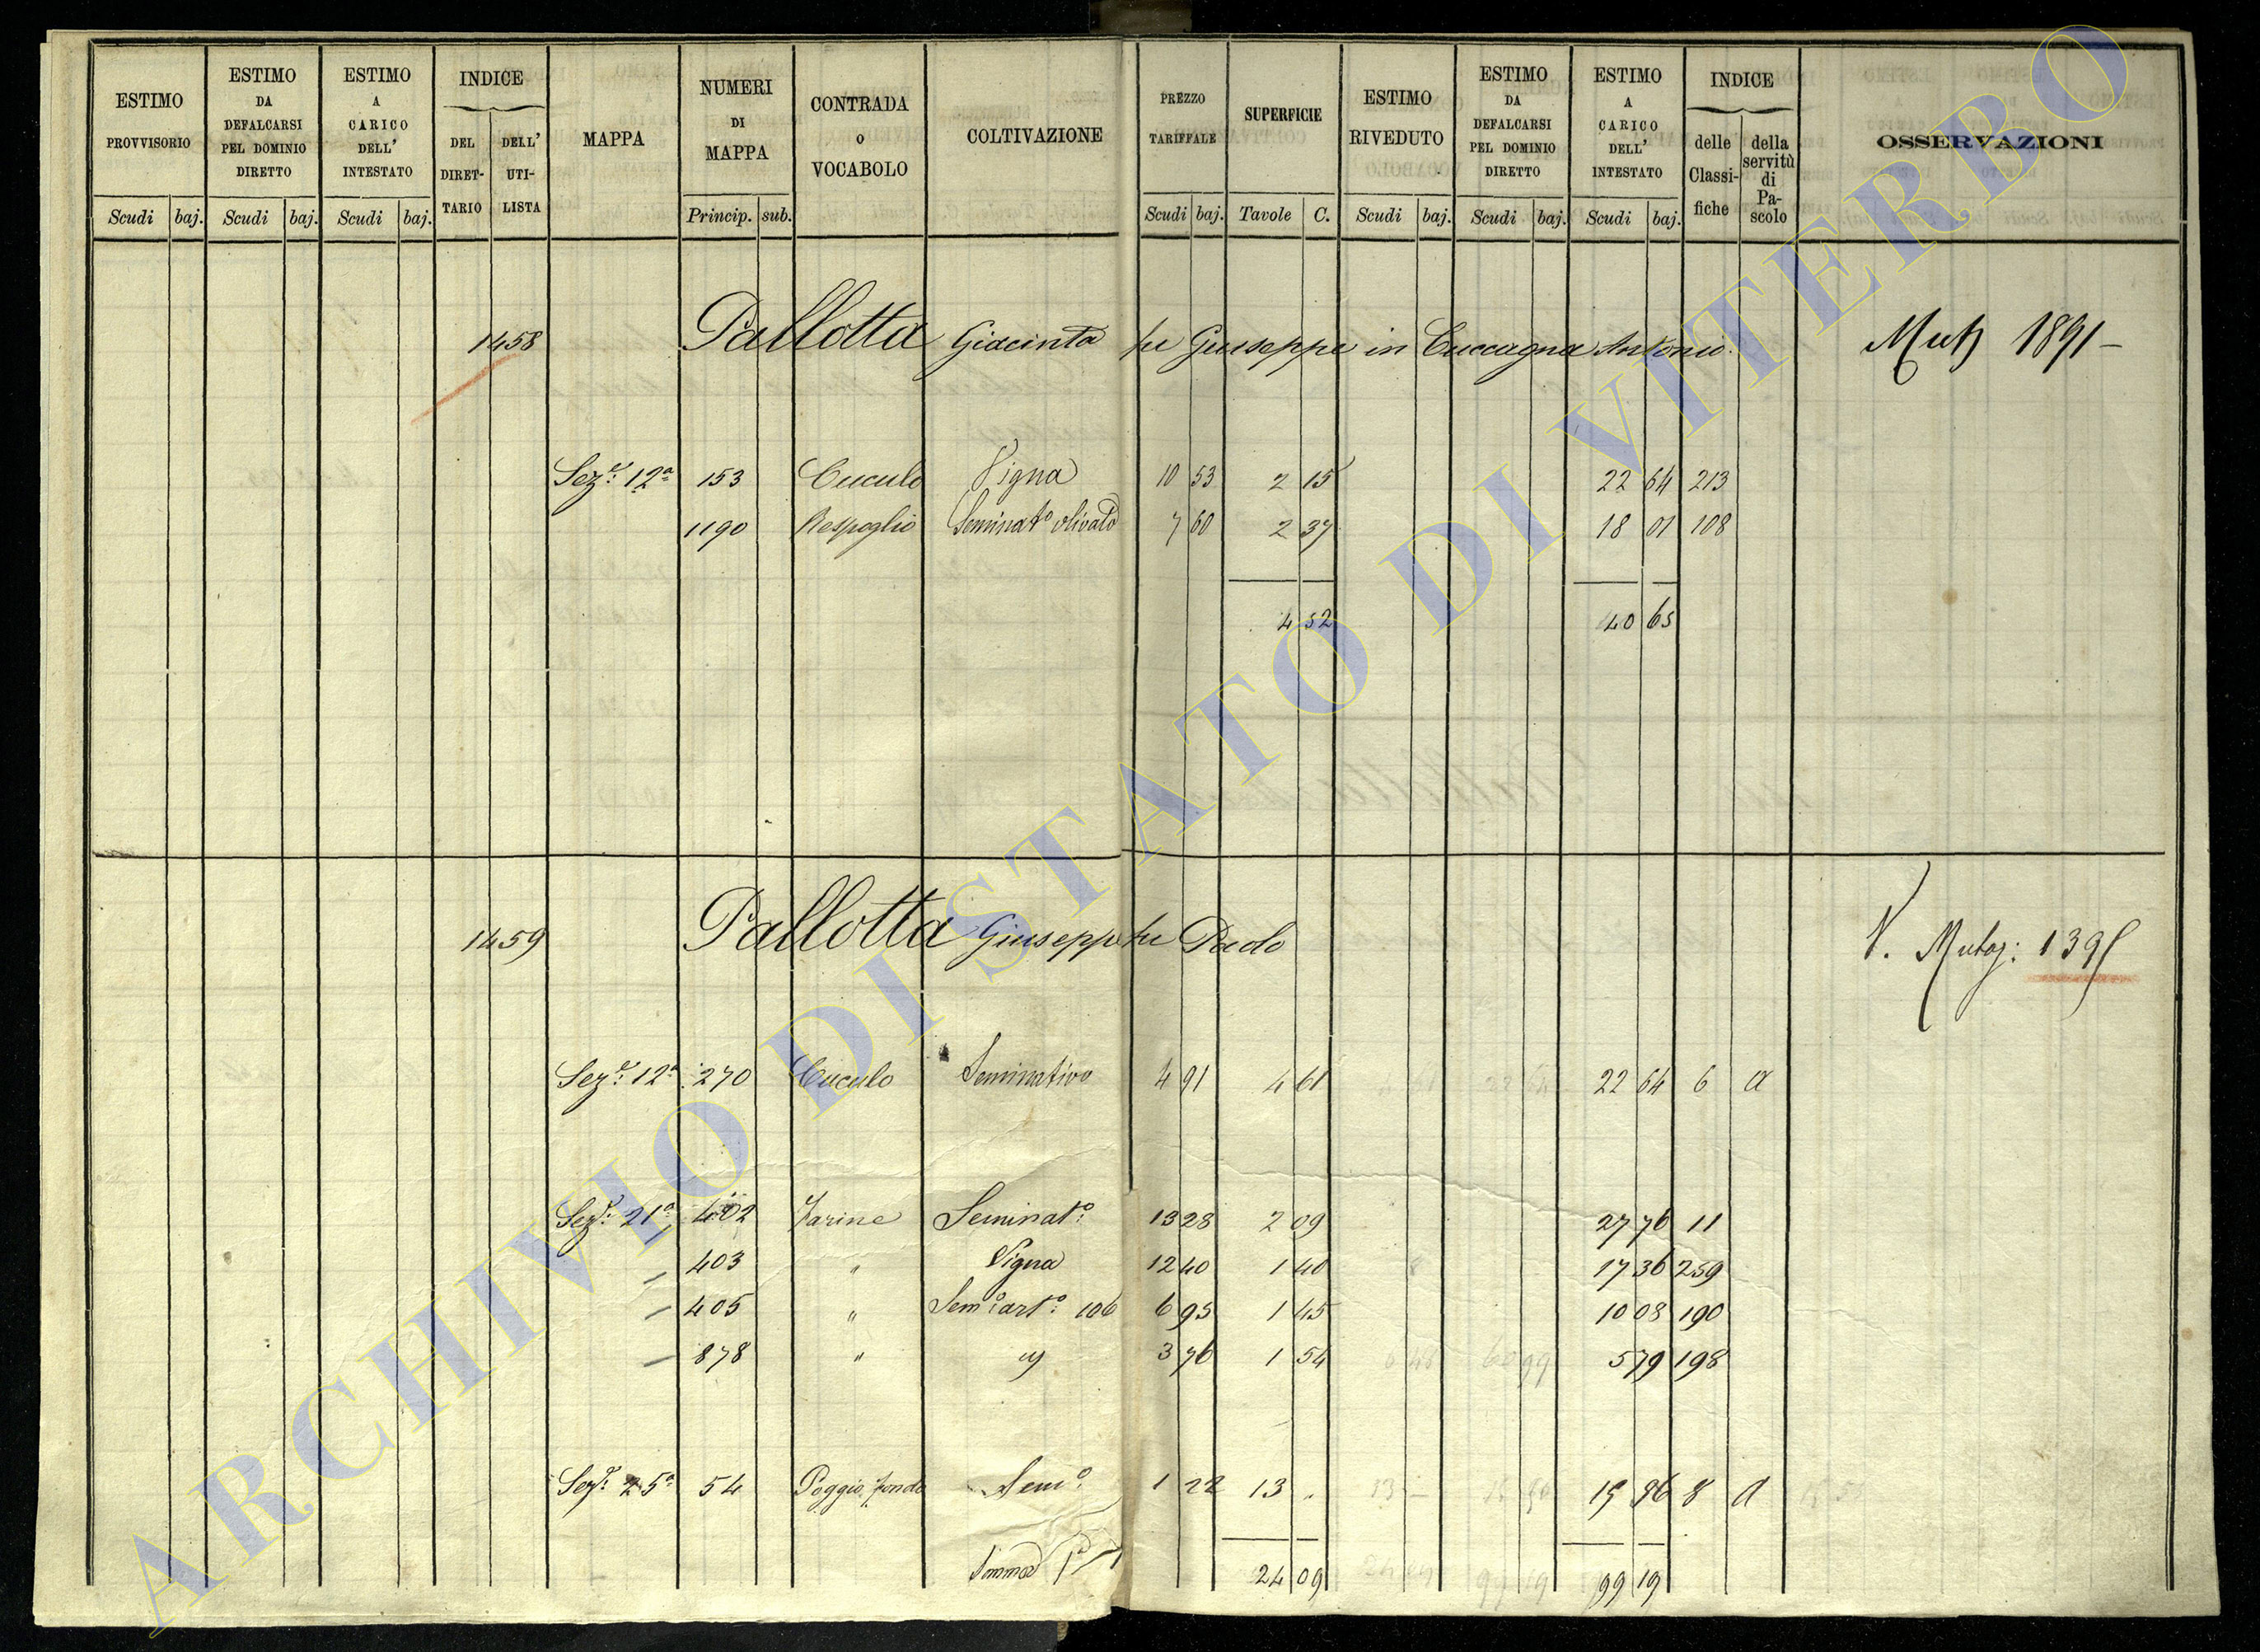 ESTIMO PROVVISORIO
ESTIMO DA DEFALCARSI PEL DOMINIO DIRETTO
ESTIMO A CARICO DELL' INTESTATO
INDICE
DEL DIRETTARIO
DELL' UTILISTA
MAPPA
NUMERI DI MAPPA
CONTRADA o VOCABOLO
COLTIVAZIONE
PREZZO TARIFFALE
SUPERFICIE
ESTIMO RIVEDUTO
ESTIMO DA DEFALCARSI PEL DOMINIO DIRETTO
ESTIMO A CARICO DELL' INTESTATO
INDICE
delle Classifiche
della servitù di Pascolo
OSSERVAZIONI
Scudi baj. Scudi baj. Scudi baj. Princip. sub. Scudi baj. Tavole C. Scudi baj. Scudi baj. Scudi baj.
1458 Pallotta Giacinta fu Giuseppe in Cuccagna Antonio. 1891 –
Sez.e 12a 153 Cuculo Vigna 10 53 2 15 22 64 213
1190 Respoglio Seminat.o olivato 7 60 2 37 18 01 108
4 52 40 65
1459 Pallotta Giuseppe fu Paolo V. Mutaz:
Sez.e 12a 270 Cuculo Seminativo 4 91 4 61 22 64 6 a
Sez.e 21a 402 Farine Seminat.o 13 28 2 09 27 76 11
– 403 " Vigna 12 40 1 40 17 36 259
– 405 " Sem.o art.o 106 6 95 1 45 10 08 190
– 878 " 3 76 1 54 5 79 198
Sez.e 25a 54 Poggio fondo Sem.o 1 22 13 . 15 86 8 a
Somma 24 09 99 19
ARCHIVIO DI STATO DI VITERBO